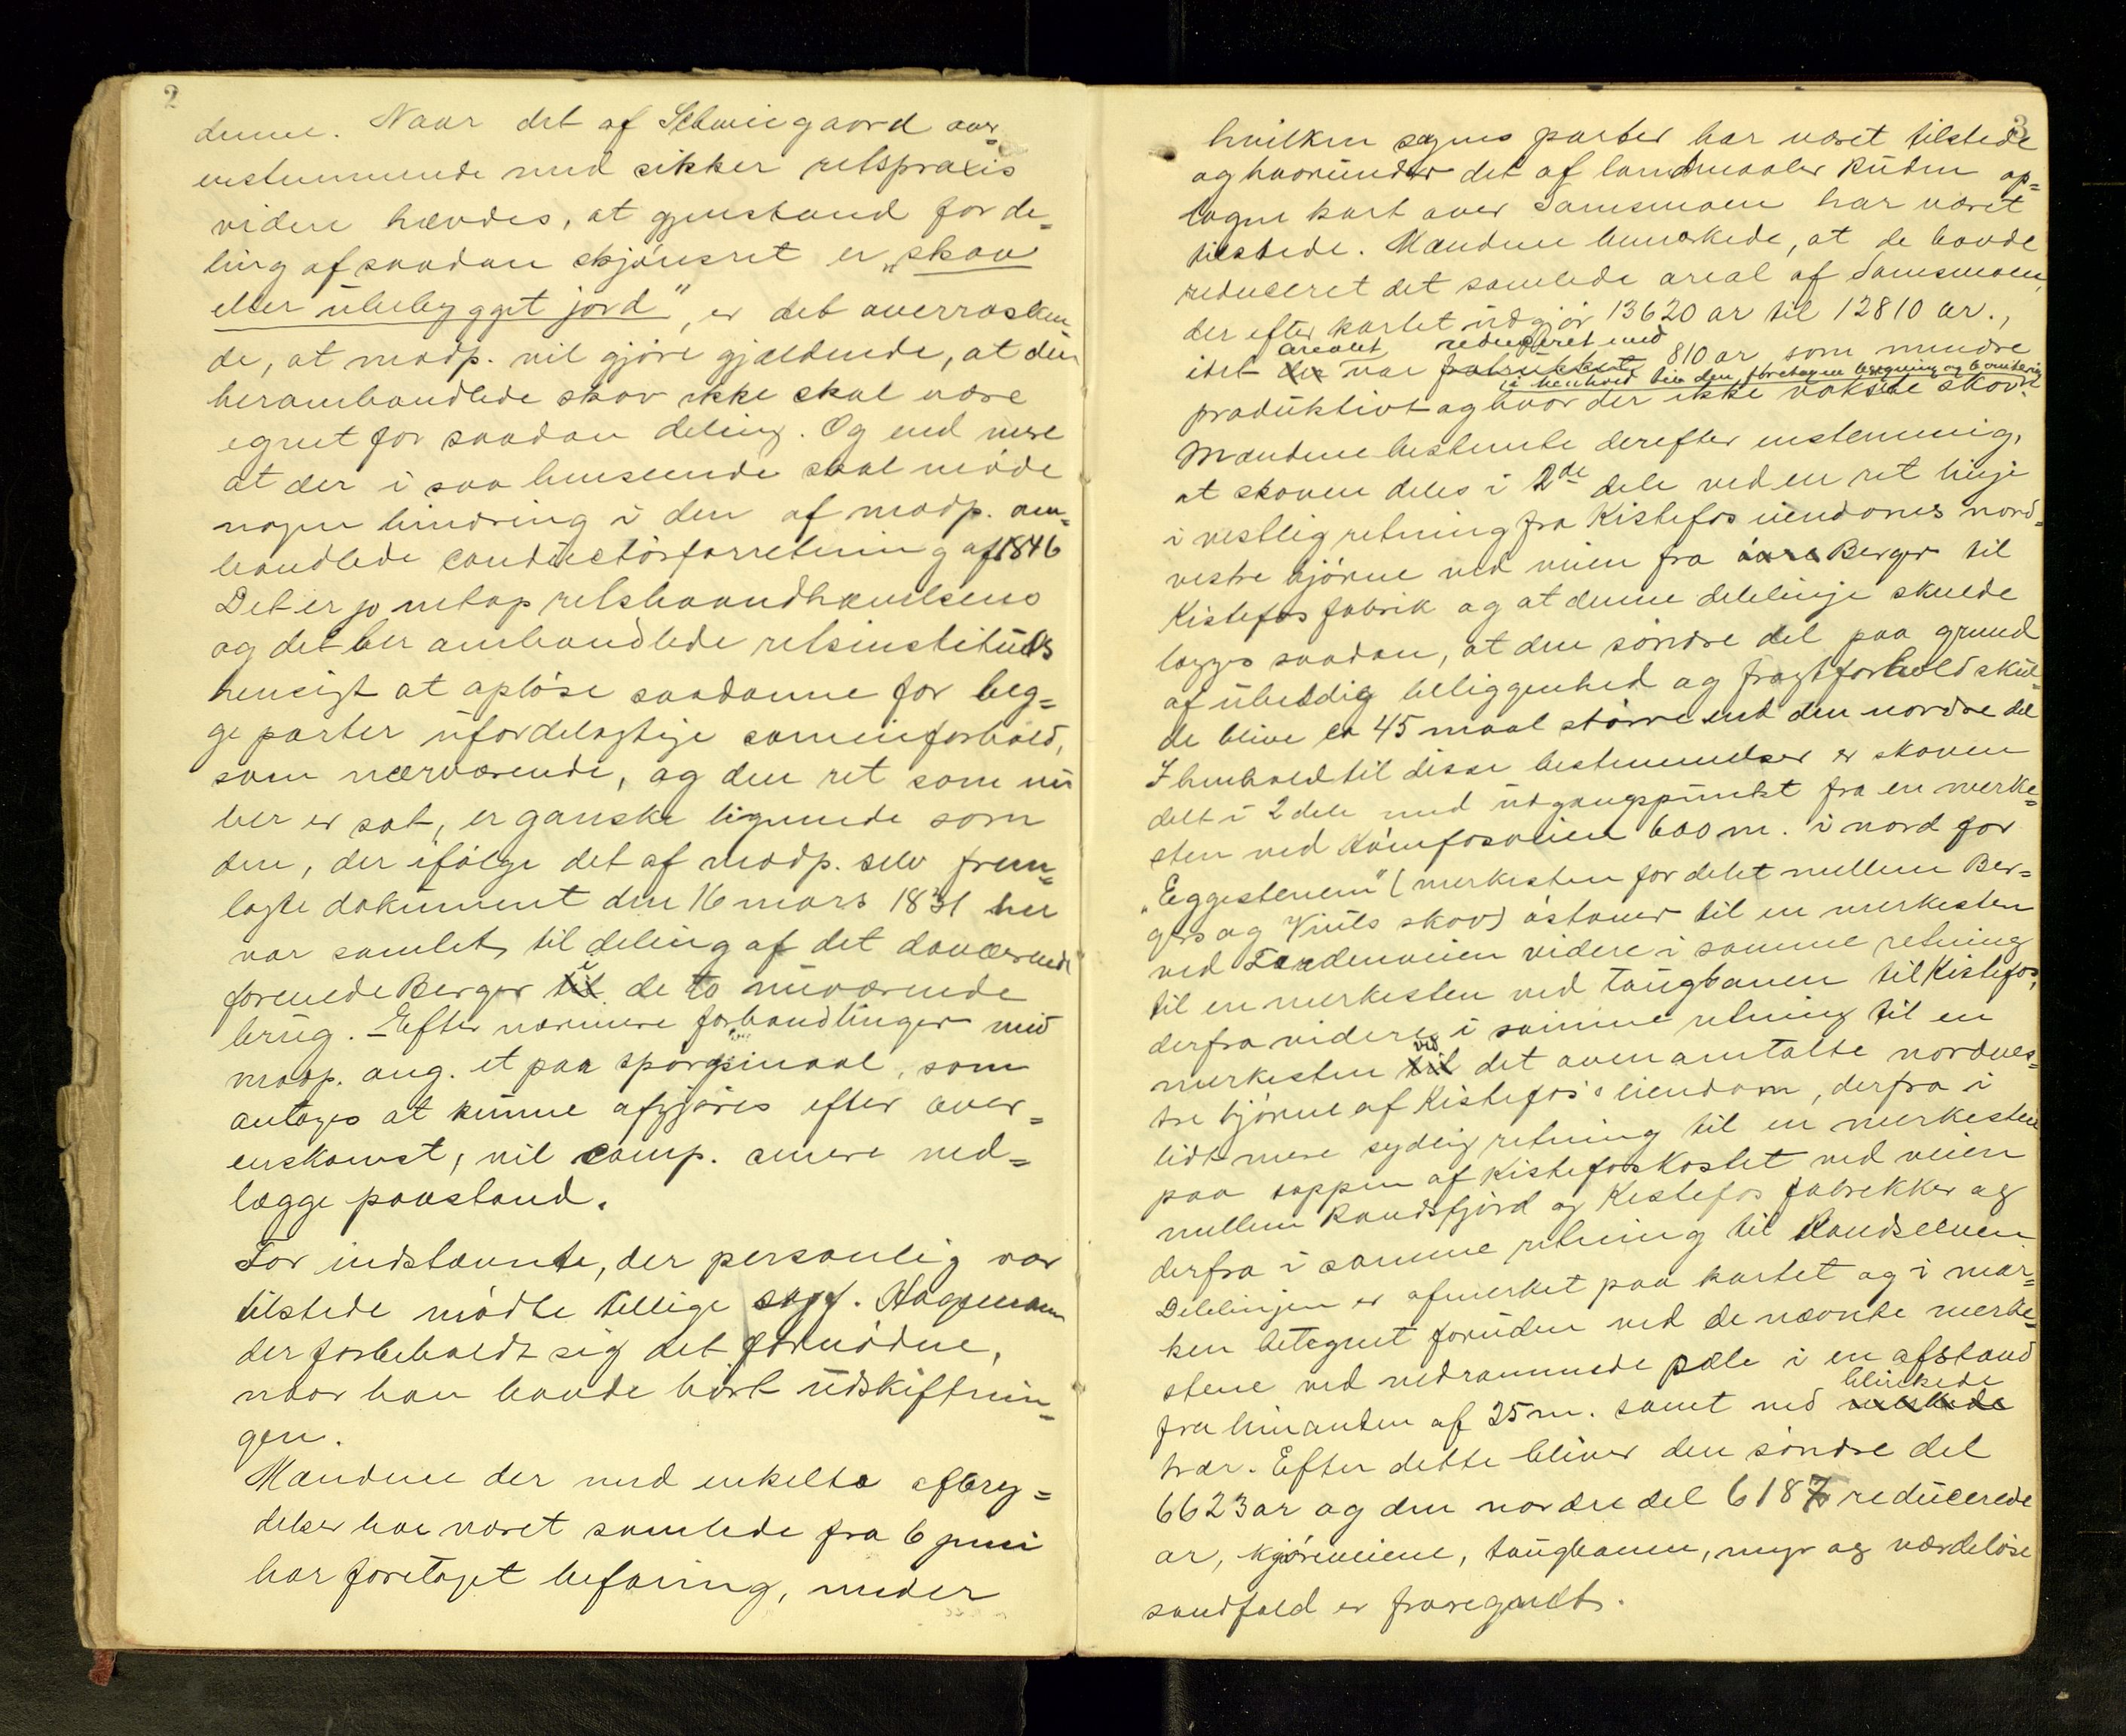 2
denne. Naar det af Schweigaard over=
ensstemmende med sikker retspraxis
videre hævdes, at gjenstand for de=
ling af saadan skjönsret er „skov
eller ubebygget jord", er det overrasken=
de, at modp. vil gjöre gjældende, at den
heromhandlede skov ikke skal være
egnet for saadan deling. Og end mere
at der i saa henseende skal möde
nogen hindring i den af modp. om=
handlede conductörforretning af 1846
Det er jo netop retshaandhævelsens
og det her omhandlede retsinstituts
hensigt at oplöse saadanne for beg=
ge parter ufordelagtige sameieforhold,
som nærværende, og den ret som nu
her er sat, er ganske lignende som
den, der ifölge det af modp. selv frem=
lagte dokument den 16 mars 1831 her
var samlet, til deling af det daværende
forenede Berger til i de to nuværende
brug. – Efter nærmere forhandlinger med
modp. ang. et par spörgsmaal, som
antages at kunne afgjöres efter over=
enskomst, vil comp. senere ned=
lægge paastand.
For indstævnte, der personlig var
tilstede mödte tillige sagf. Hagemann
der forbeholdt sig det fornödne,
naar han havde hört udskiftnin=
gen.
Mændene der med enkelte afbry=
delser har været samlede fra 6 juni
har foretaget befaring, under
3
hvilken sagens parter har været tilstede
og hvorunder det af landmaaler Ruden op=
tagne kart over Samsmoen har været
tilstede. Mændene bemærkede, at de havde
reduceret det samlede areal af Samsmoen,
der efter kartet udgjör 13620 ar til 12810 ar.,
arealet reduceret med
idet der var fabrukket 810 ar, som mindre
i henhold til den foretagne besigtning og bonitering
produktivt og hvor der ikke voksede skov.
Mændene bestemte derefter enstemmig,
at skoven deles i 2de dele ved en ret linje
i vestlig retning fra Kistefos eiendoms nord=
vestre hjörne ved veien fra övre Berger til
Kistefos fabrik og at denne delelinje skulde
lægges saadan, at den söndre del paa grund
af uheldig beliggenhed og fragtforhold skul=
de blive ca 45 maal större end den nordre del
I henhold til disse bestemmelser er skoven
delt i 2 dele med udgangspunkt fra en merke=
sten ved Hönfosveien 600 m. i nord for
„Eggestenen" (merkesten for delet mellem Ber=
gers og Viuls skov) östover til en merkesten
ved Tandenveien videre i samme retning
til en merkesten ved taugbanen til Kistefos,
derfra videre i samme retning til en
merkesten til ved det ovenomtalte nordves=
tre hjörne af Kistefos's eiendom, derfra i
lidt mere sydlig retning til en merkesten
paa toppen af Kistefoskastet ved veien
mellem Randsfjord og Kistefos fabrikker og
derfra i samme retning til Randselven
Delelinjen er afmerket paa kartet og i mar=
ken betegnet foruden ved de nævnte merke=
stene ved nedrammede pæle i en afstand
blinkede
fra hinanden af 25 m. samt ved
trær. Efter dette bliver den söndre del
6623 ar og den nordre del 6187 reducerede
ar, kjöreveiene, taugbanen, myr og værdelöse
sandfald er fraregnet.